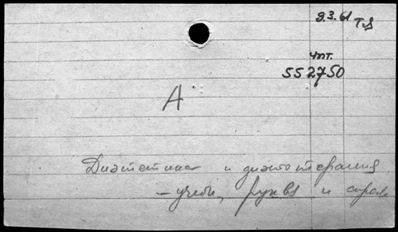 9.3.61
Чит.
552750
А
Диэтетика и диэтотерапия
– учебн, руков и справ